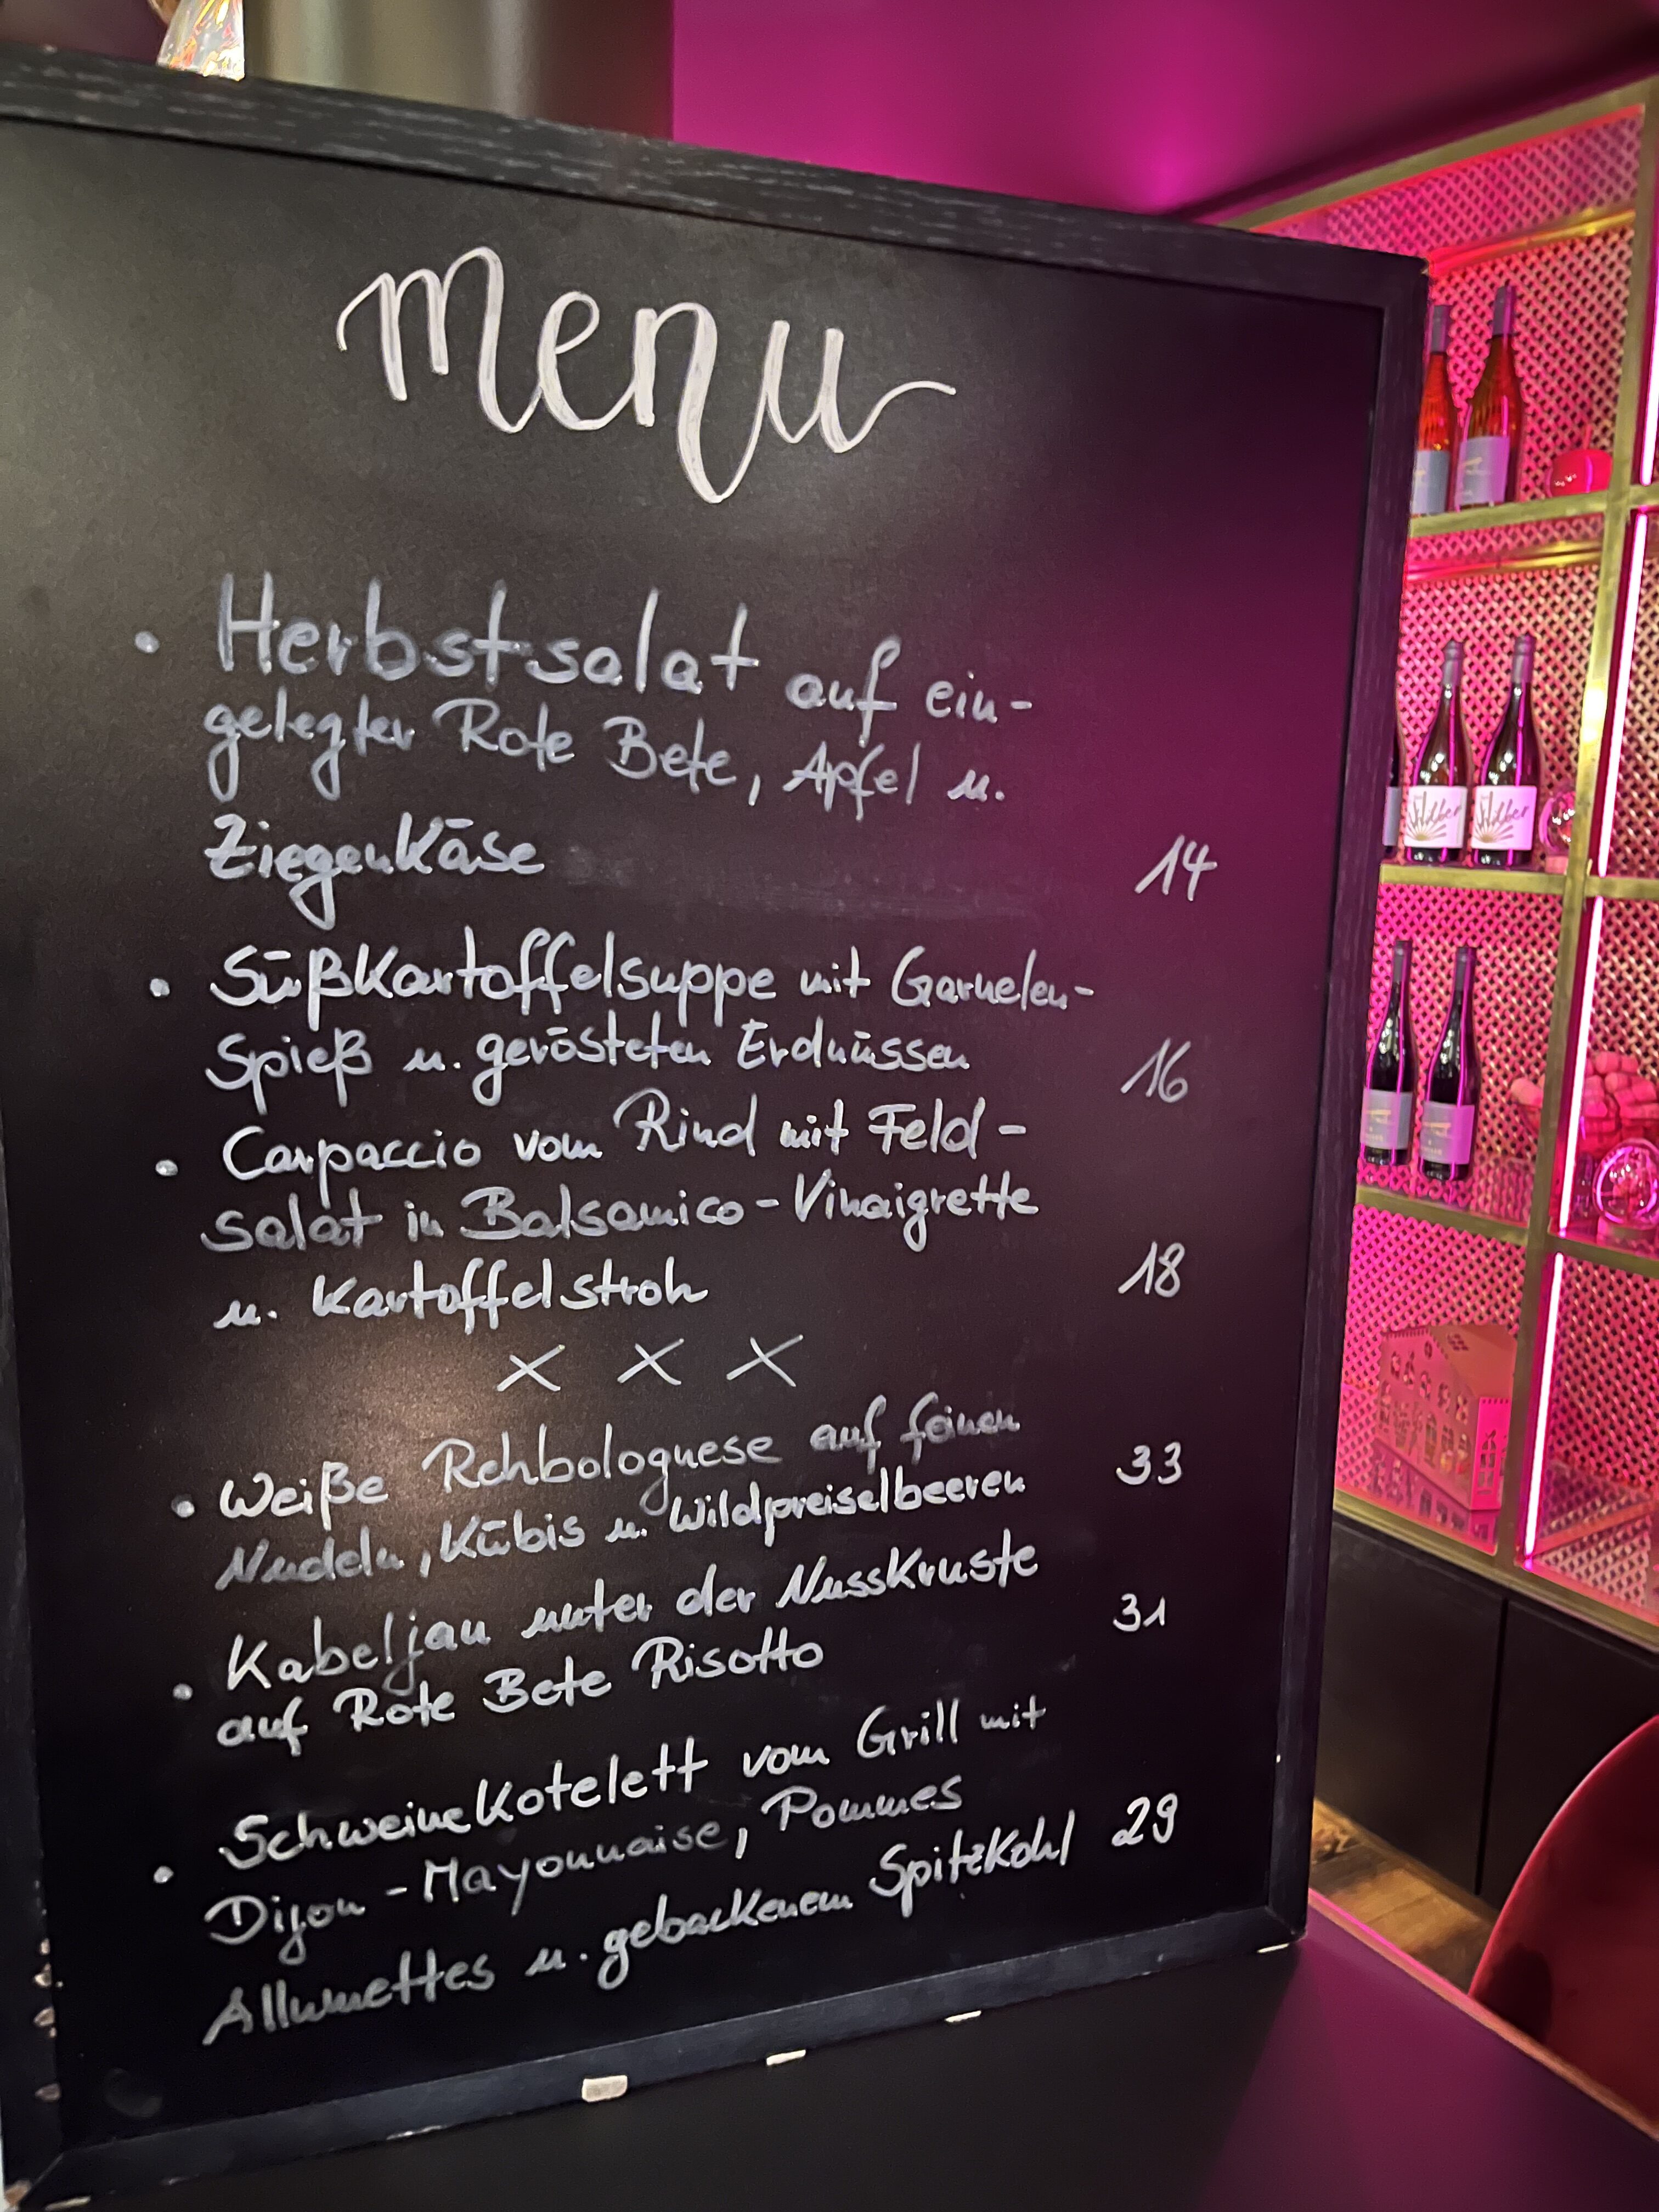 menu
• Herbstsalat auf ein-
gelegter Rote Bete, Apfel u.
Ziegenkäse 14
• Süßkartoffelsuppe mit Garnelen-
Spieß u. gerösteten Erdnüssen 16
• Carpaccio vom Rind mit Feld-
salat in Balsamico-Vinaigrette
u. Kartoffelstroh 18
X X X
• Weiße Rehbolognese auf feinen
Nudeln, Kübis u. Wildpreiselbeeren 33
• Kabeljau unter der Nusskruste
auf Rote Bete Risotto 31
• Schweinekotelett vom Grill mit
Dijon-Mayonnaise, Pommes
Allumettes u. gebackenem Spitzkohl 29